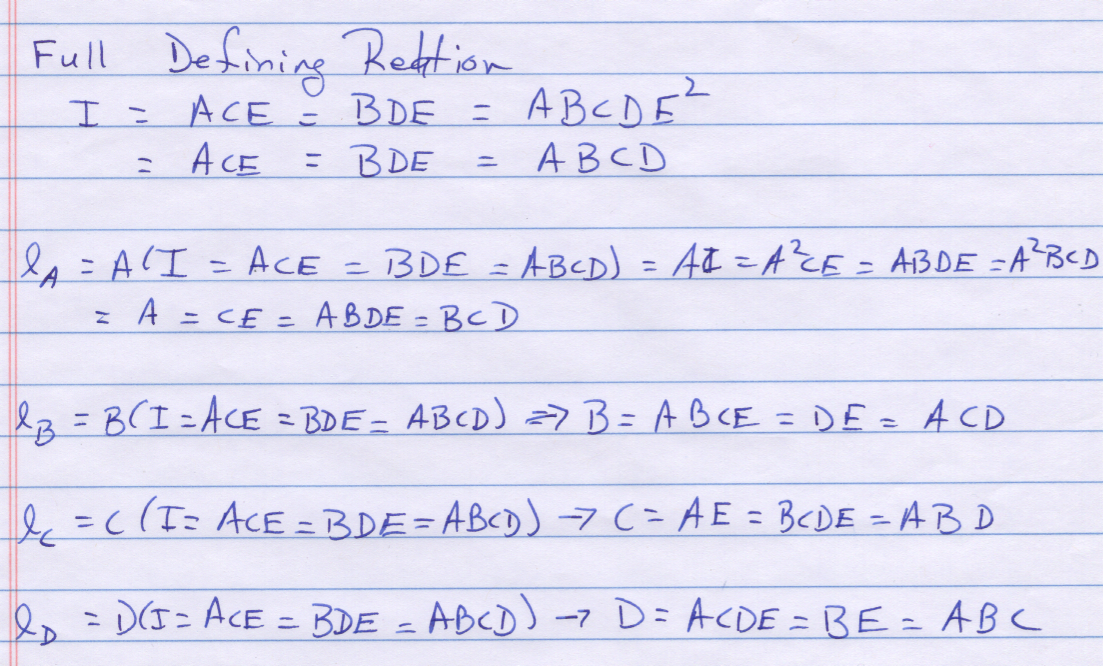 Full Defining Relation
I = ACE = BDE = ABCDE²
= ACE = BDE = ABCD
l_A = A(I = ACE = BDE = ABCD) = AI = A²CE = ABDE = A²BCD
= A = CE = ABDE = BCD
l_B = B(I = ACE = BDE = ABCD) ⇒ B = ABCE = DE = ACD
l_C = C(I = ACE = BDE = ABCD) → C = AE = BCDE = ABD
l_D = D(I = ACE = BDE = ABCD) → D = ACDE = BE = ABC